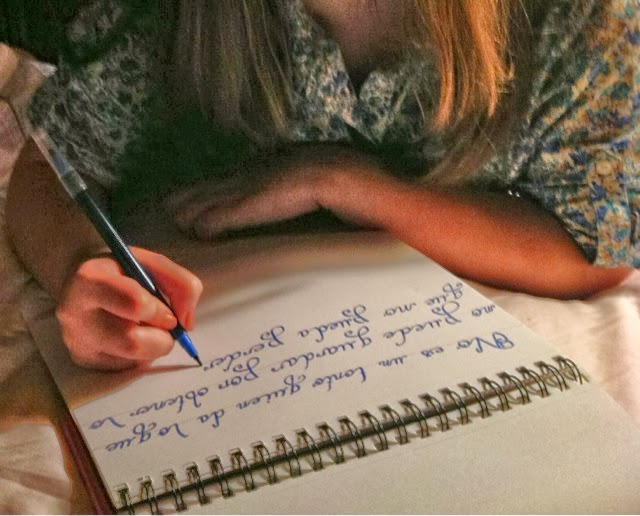 No es un tonto quien da lo que
no puede guardar por obtener lo
que no pueda perder